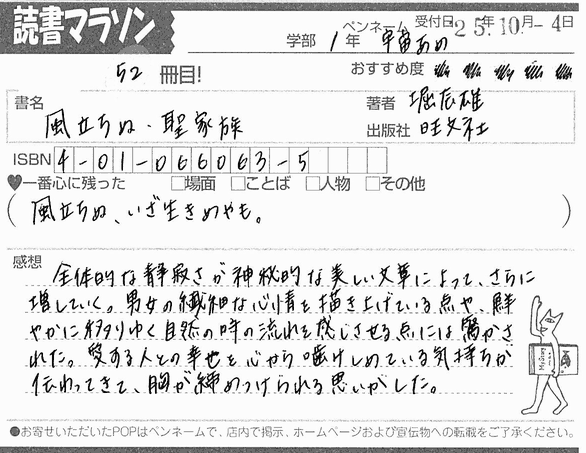 読書マラソン
学部 1年 ペンネーム 宇宙あめ 受付日 '25年10月-4日
52 冊目!
おすすめ度
書名 風立ちぬ・聖家族
著者 堀辰雄
出版社 旺文社
ISBN 4-01-066063-5
♥一番心に残った □場面 □ことば □人物 □その他
(風立ちぬ、いざ生きめやも。)
感想
全体的な静寂さが神秘的な美しい文章によって、さらに
増していく。男女の繊細な心情を描き上げている点や、鮮
やかに移りゆく自然の時の流れを感じさせる点には驚かさ
れた。愛する人との幸せを心から噛けしめている気持ちが
伝わってきて、胸が締めつけられる思いがした。
●お寄せいただいたPOPはペンネームで、店内で掲示、ホームページおよび宣伝物への転載をご了承ください。